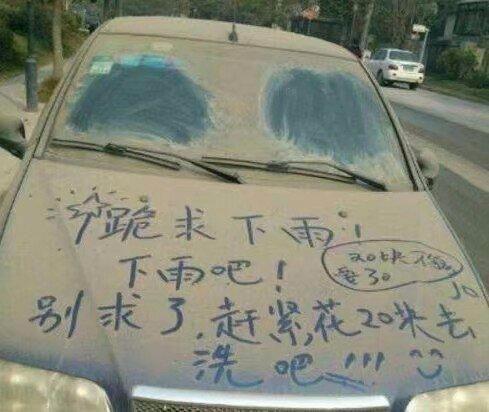 跪求下雨!
下雨吧!
20块不够
要30
别求了,赶紧花20块去
洗吧!!!